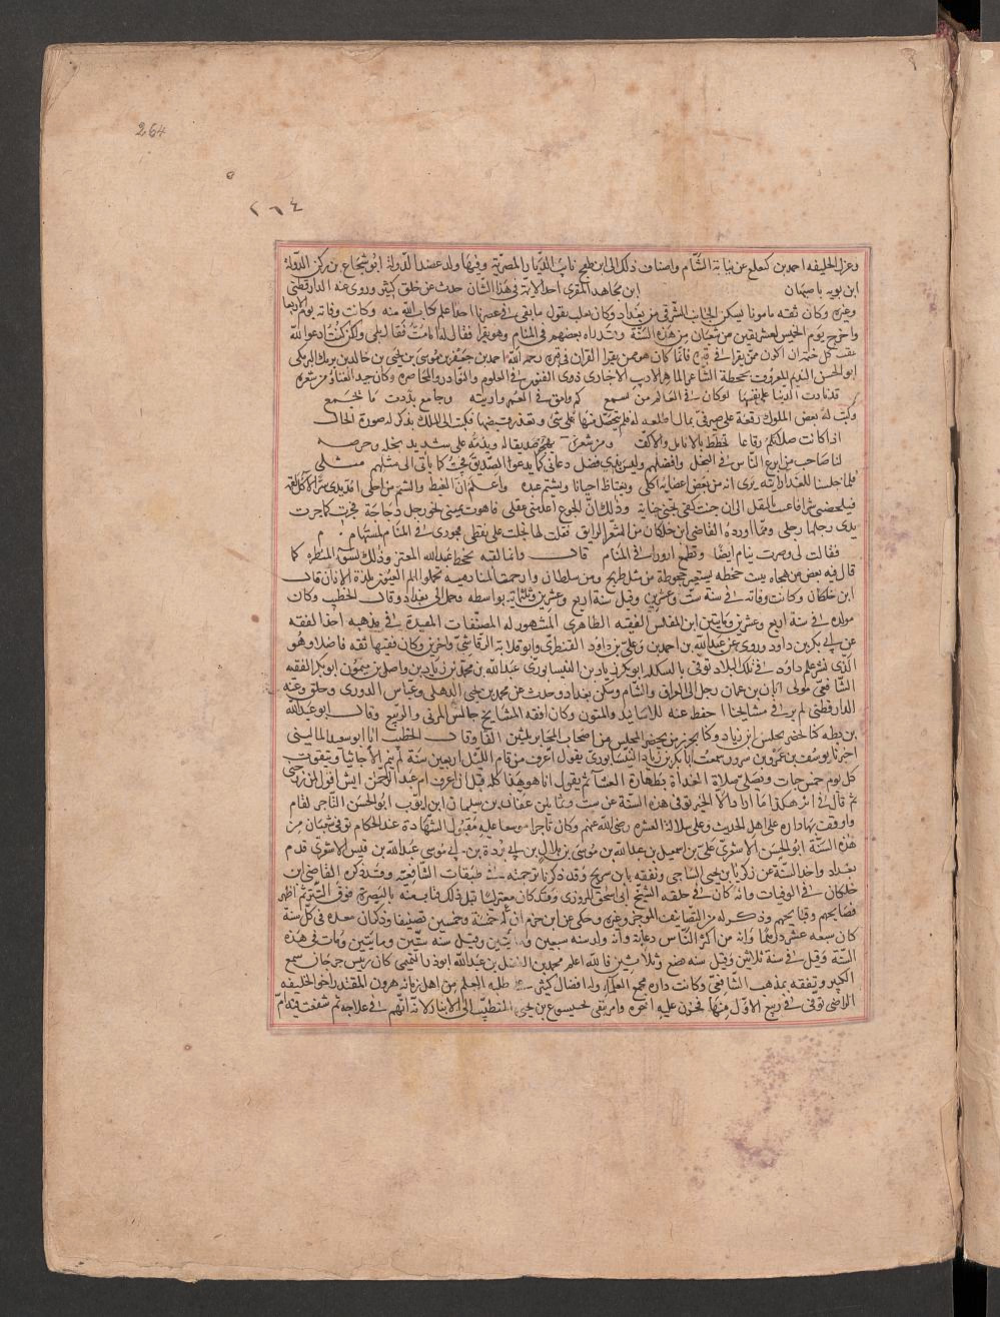 264
٢٦٤
وعزل الخليفه احمد بن كيغلغ عن نيابة الشام واضاف ذلك الى ابن طغج نايب الديار المصرية وفيها ولد عضد الدولة ابو شجاع بن ركن الدولة
ابن بويه باصبهان ابن مجاهد المقرى احد الائمة فى هذا الشان حدث عن خلق كثير وروى عنه الدارقطنى
وغيره وكان ثقه مامونا يسكن الجانب الشرقى من بغداد وكان ثعلب يقول ما بقى فى عصرنا احد اعلم بكتاب الله منه وكانت وفاته يوم الاربعا
واخرج يوم الخميس لعشر بقين من شعبان من هذه السنة وقد راه بعضهم فى المنام وهو يقرا فقال له اما مت فقال بلى ولكن كنت ادعوا الله
عقب كل ختمه ان اكون ممن يقرا فى قبره فانا كان هو ممن يقرا القران فى قبره رحمه الله احمد بن جعفر بن موسى بن يحيى بن خالد بن برمك البرمكى
ابو الحسن النديم المعروف بجحظة الشاعر الماهر الاديب الاخبارى ذوى الفنون فى العلوم والنوادر والحاضره وكان جيد الغناء ومن شعره
قد نادت الدنيا على نفسها لو كان فى العالم من يسمع كم واثق فى العمر واريته وجامع بددت ما يجمع
وكتب له بعض الملوك رقعة على صيرفى بمال اطلقه له فلم يتحصل منها على شى وتعذر قبضها فكتب الى الملك يذكر له صورة الحال
اذا كانت صلاتكم رقاعا تخطط بالانامل والاكف ومن شعره يهجو صديقا له ويذمه على شديد بخله وحرصه
لنا صاحب من ابرع الناس فى البخل وافضلهم وليس بذى فضل دعانى كما يدعوا الصديق صديقه فجئت كما ياتى الى مثلهم مثلى
فلما جلسنا للغدا رايته يرى انه من بعض اعضايه اكلى ويغتاظ احيانا ويشتم عبده واعلم ان الغيظ والشتم من اجلى امد يدى سرا لاكل لقمه
فيلحضنى شزرا فاعبث بالبقل الى ان جنت كفى لحينى جناية وذلك ان الجوع اعدمنى عقلى فاهوت يمينى نحو رجل دجاجة فجرت كما جرت
يدى رجلها رجلى ومما اورده القاضى ابن خلكان من الشعر الرايق فقلت لها بخلت على يقظى فجودى فى المنام لمستهام
فقالت لى وصرت ينام ايضا وتطمع ازورك فى المنام قال وانما لقبه بجحظة عبدالله المعتز وذلك لسو منظره كما
قال فيه بعض من هجاه
ابن خلكان وكانت وفاته فى سنة ست وعشرين وقيل سنة اربع وعشرين وثلثماية بواسط وحمل الى بغداد وقال الخطيب وكان
مولده فى سنة اربع وعشرين ومايتين ابن المغلس الفقيه الظاهرى المشهور له المصنفات المفيدة فى مذهبه اخذ الفقه
عن ابى بكر بن داود وروى عن عبدالله بن احمد بن وعلى بن داود القنطرى وابو قلابة الرقاشى واخرين وكان فقيها ثقة فاضلا وهو
الذى نشر علم داود فى تلك البلاد توفى بالسكته ابو بكر بن زياد بن النيسابورى عبدالله بن محمد بن زياد بن واصل بن ميمون ابو بكر الفقيه
الشافعى مولى ابان بن عثمان رحل الى العراق والشام ومصر وسكن بغداد وحدث عن محمد بن يحيى الذهلى وعباس الدورى وخلق وعنه
الدارقطنى لم ير فى مشايخنا احفظ منه للاسانيد والمتون وكان افقه المشايخ جالس المزنى والربيع وقال ابو عبدالله
بن بطه كنا نحضر مجلس ابن زياد وكان يحزر من يحضر المجلس من اصحاب المحابر ثلثين الفا وقال الخطيب انا ابو سعد المالينى
اخبرنا يوسف بن عمر بن مسرور سمعت ابا بكر بن زياد النيسابورى يقول اعرف من قام الليل اربعين سنة لم ينم الا جاثيا ويتقوت
كل يوم خمس حبات ويصلى صلاة الغداة بطهارة العشا ثم يقول انا هو هذا كله قبل ان اعرف ام عبد الرحمن ايش اقول لمن زوجنى
ثم قال فى اثر هكذا ما اراد الا الخير توفى هذه السنة عن ست وثمانين عفان بن سليمان ابن ايوب ابو الحسن التاجر اقام
واوقف بها داره على اهل الحديث وعلى سلالة العشره رضى الله عنهم وكان تاجرا موسعا عليه مقبول الشهادة عند الحكام توفى فى شعبان من
هذه السنة ابو الحسن الاشعرى على بن اسمعيل بن عبدالله بن موسى بن بلال بن ابى بردة بن ابى موسى عبدالله بن قيس الاشعرى قدم
بغداد واخذ السنة عن زكريا بن يحيى الساجى وتفقه بابن سريج وقد ذكرنا ترجمته فى طبقات الشافعية وقد ذكره القاضى ابن
خلكان فى الوفيات وانه كان فى حلقه الشيخ ابى اسحق المروزى وقد كان معتزليا قبل ذلك فتاب منه بالبصرة فوق المنبر ثم اظهر
فضايحهم وقبايحهم وذكر له من التصانيف الموجز وغيره وحكى عن ابن حزم ان له خمسة وخمسين تصنيفا وذكر ان مغله فى كل سنة
كان سبعه عشر درهما وانه من اكثر الناس دعابة وانه ولد سنه سبعين ومايتين وقيل سنه ستين ومايتين ومات فى هذه
السنة وقيل فى سنة ثلاثين وقيل سنه بضع وثلاثين فالله اعلم محمد بن الفضل بن عبدالله ابو ذر التميمى كان رييس جرجان سمع
الكثير وتفقه بمذهب الشافعى وكانت داره مجمع العلما وله افضال كثير على طلبه العلم من اهل زمانه هرون المقتدر اخو الخليفه
الراضى توفى فى ربيع الاول منها فحزن عليه اخوه وامر بنفى بختيشوع بن يحيى المتطبب الى الانبار لانه اتهم فى علاجه ثم شفعت فيه ام